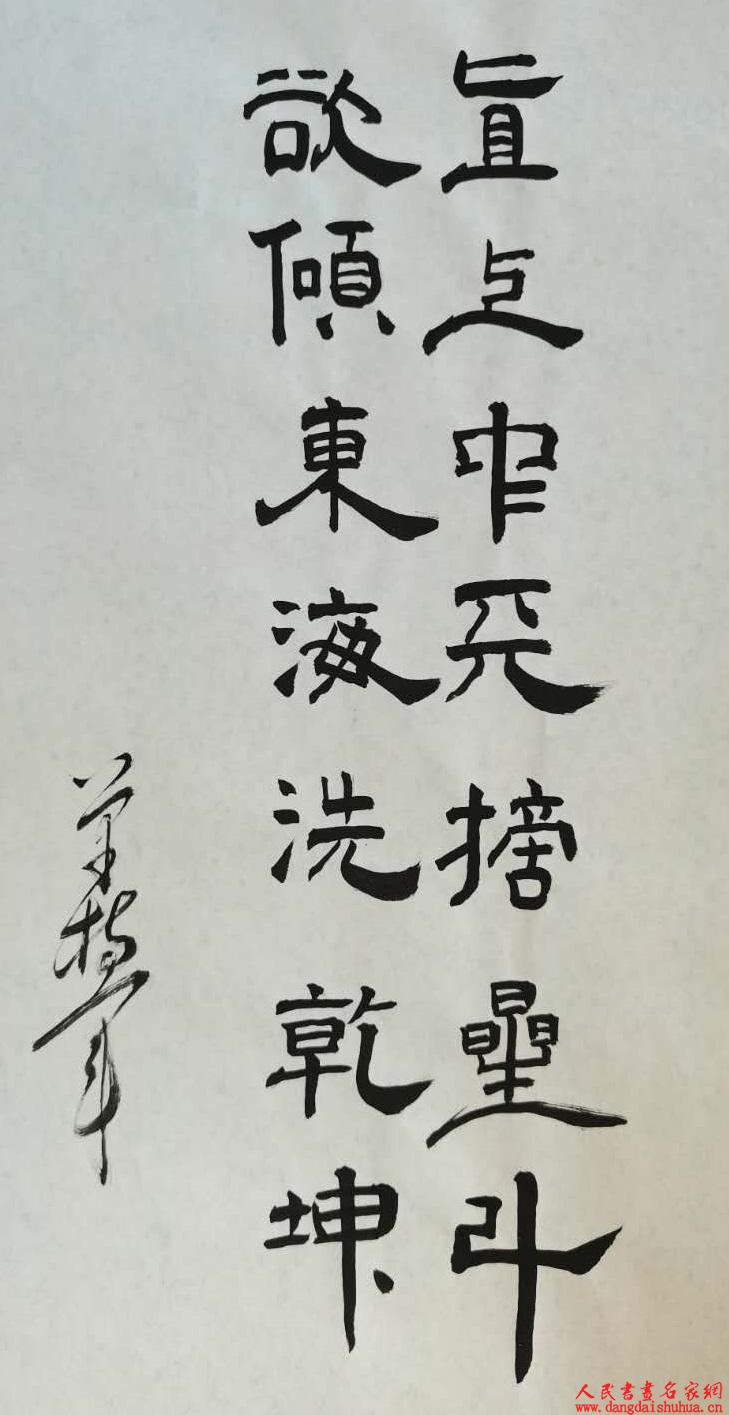 直上中天摘曐斗
欲傾東海洗乾坤
人民書畫名家網
www.dangdaishuhua.cn